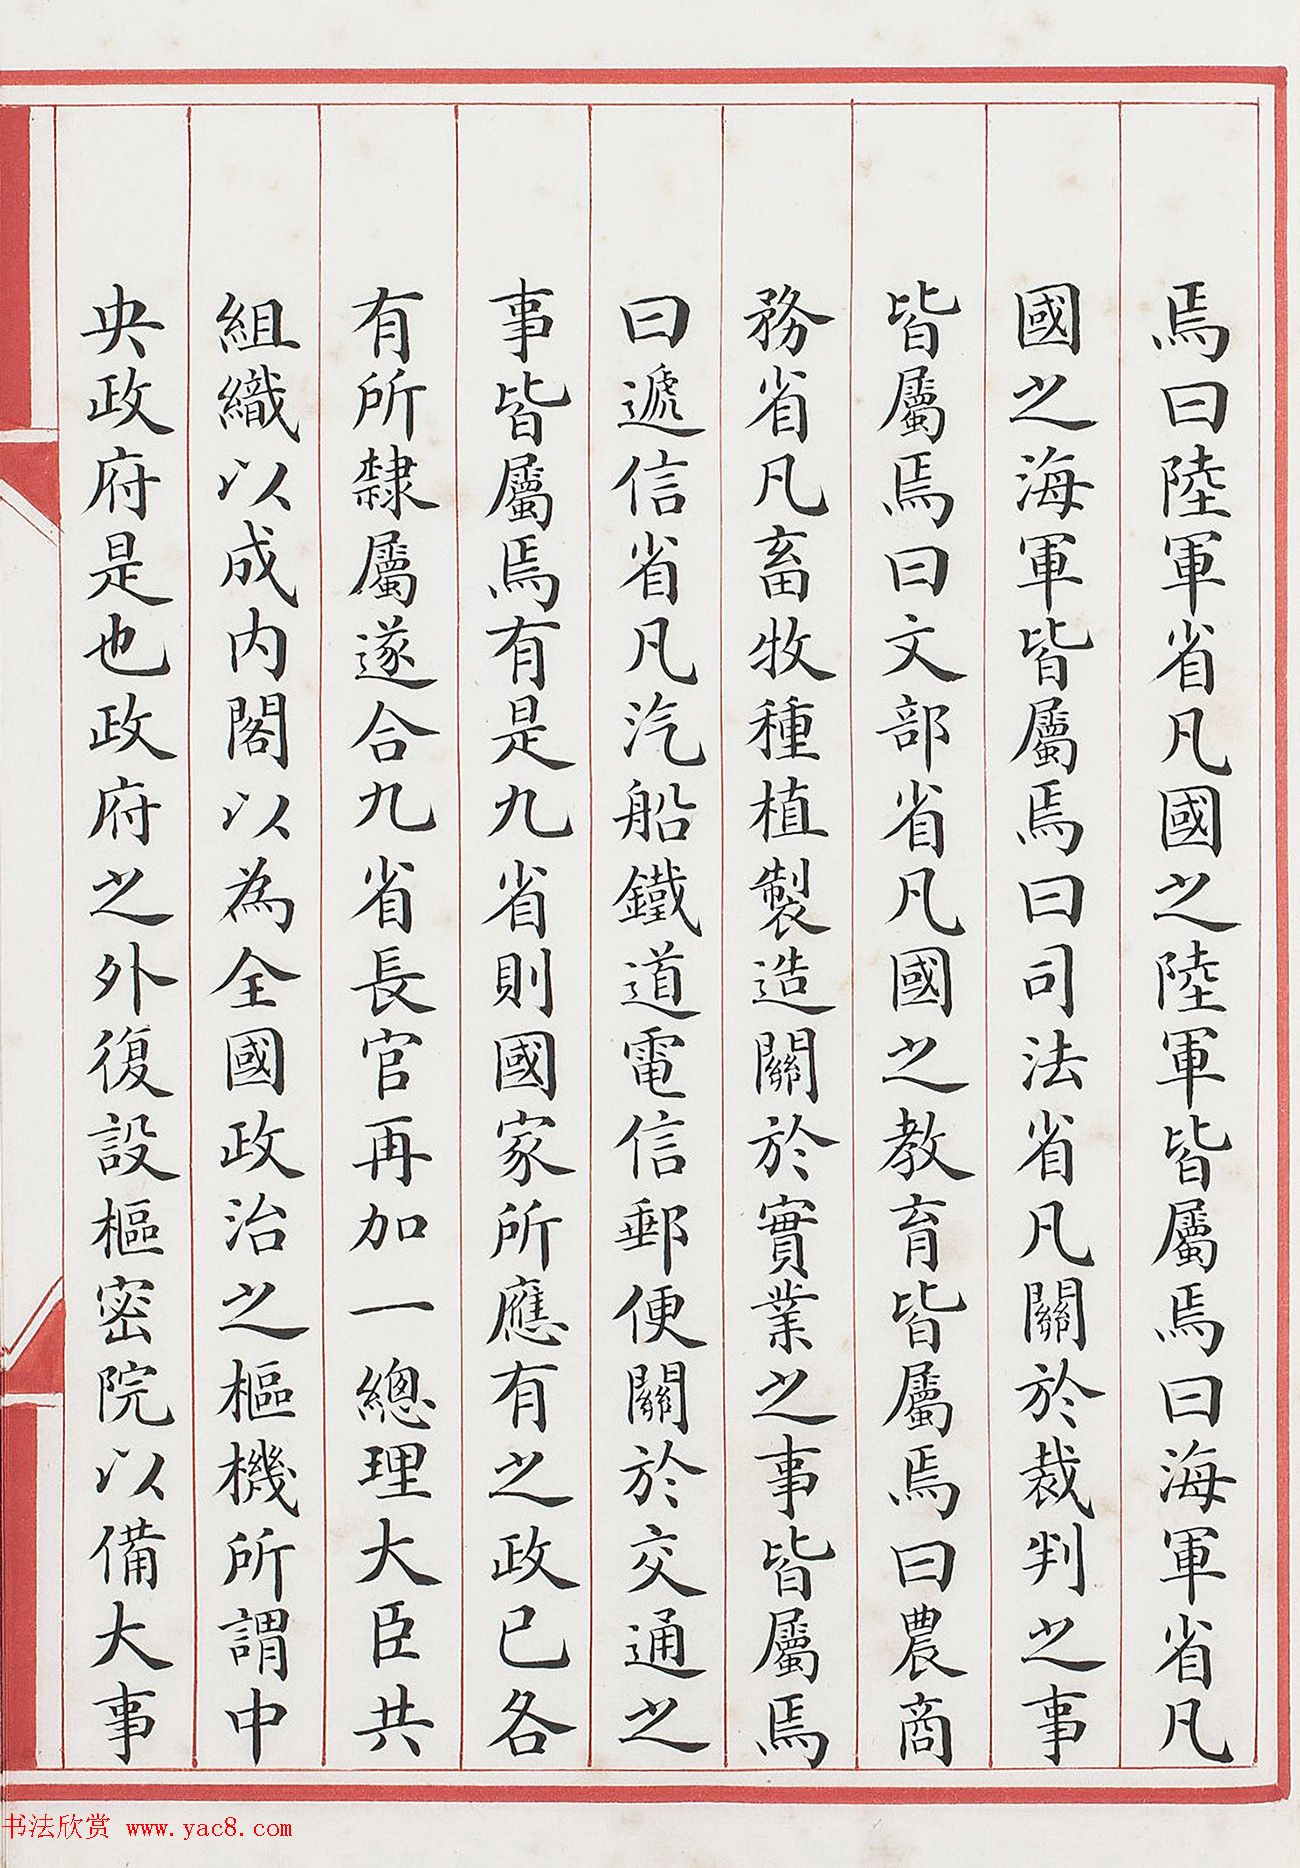 焉曰陸軍省凡國之陸軍皆屬焉曰海軍省凡
國之海軍皆屬焉曰司法省凡關於裁判之事
皆屬焉曰文部省凡國之教育皆屬焉曰農商
務省凡畜牧種植製造關於實業之事皆屬焉
曰遞信省凡汽船鐵道電信郵便關於交通之
事皆屬焉有是九省則國家所應有之政已各
有所隸屬遂合九省長官再加一總理大臣共
組織以成内閣以為全國政治之樞機所謂中
央政府是也政府之外復設樞密院以備大事
书法欣赏 www.yac8.com